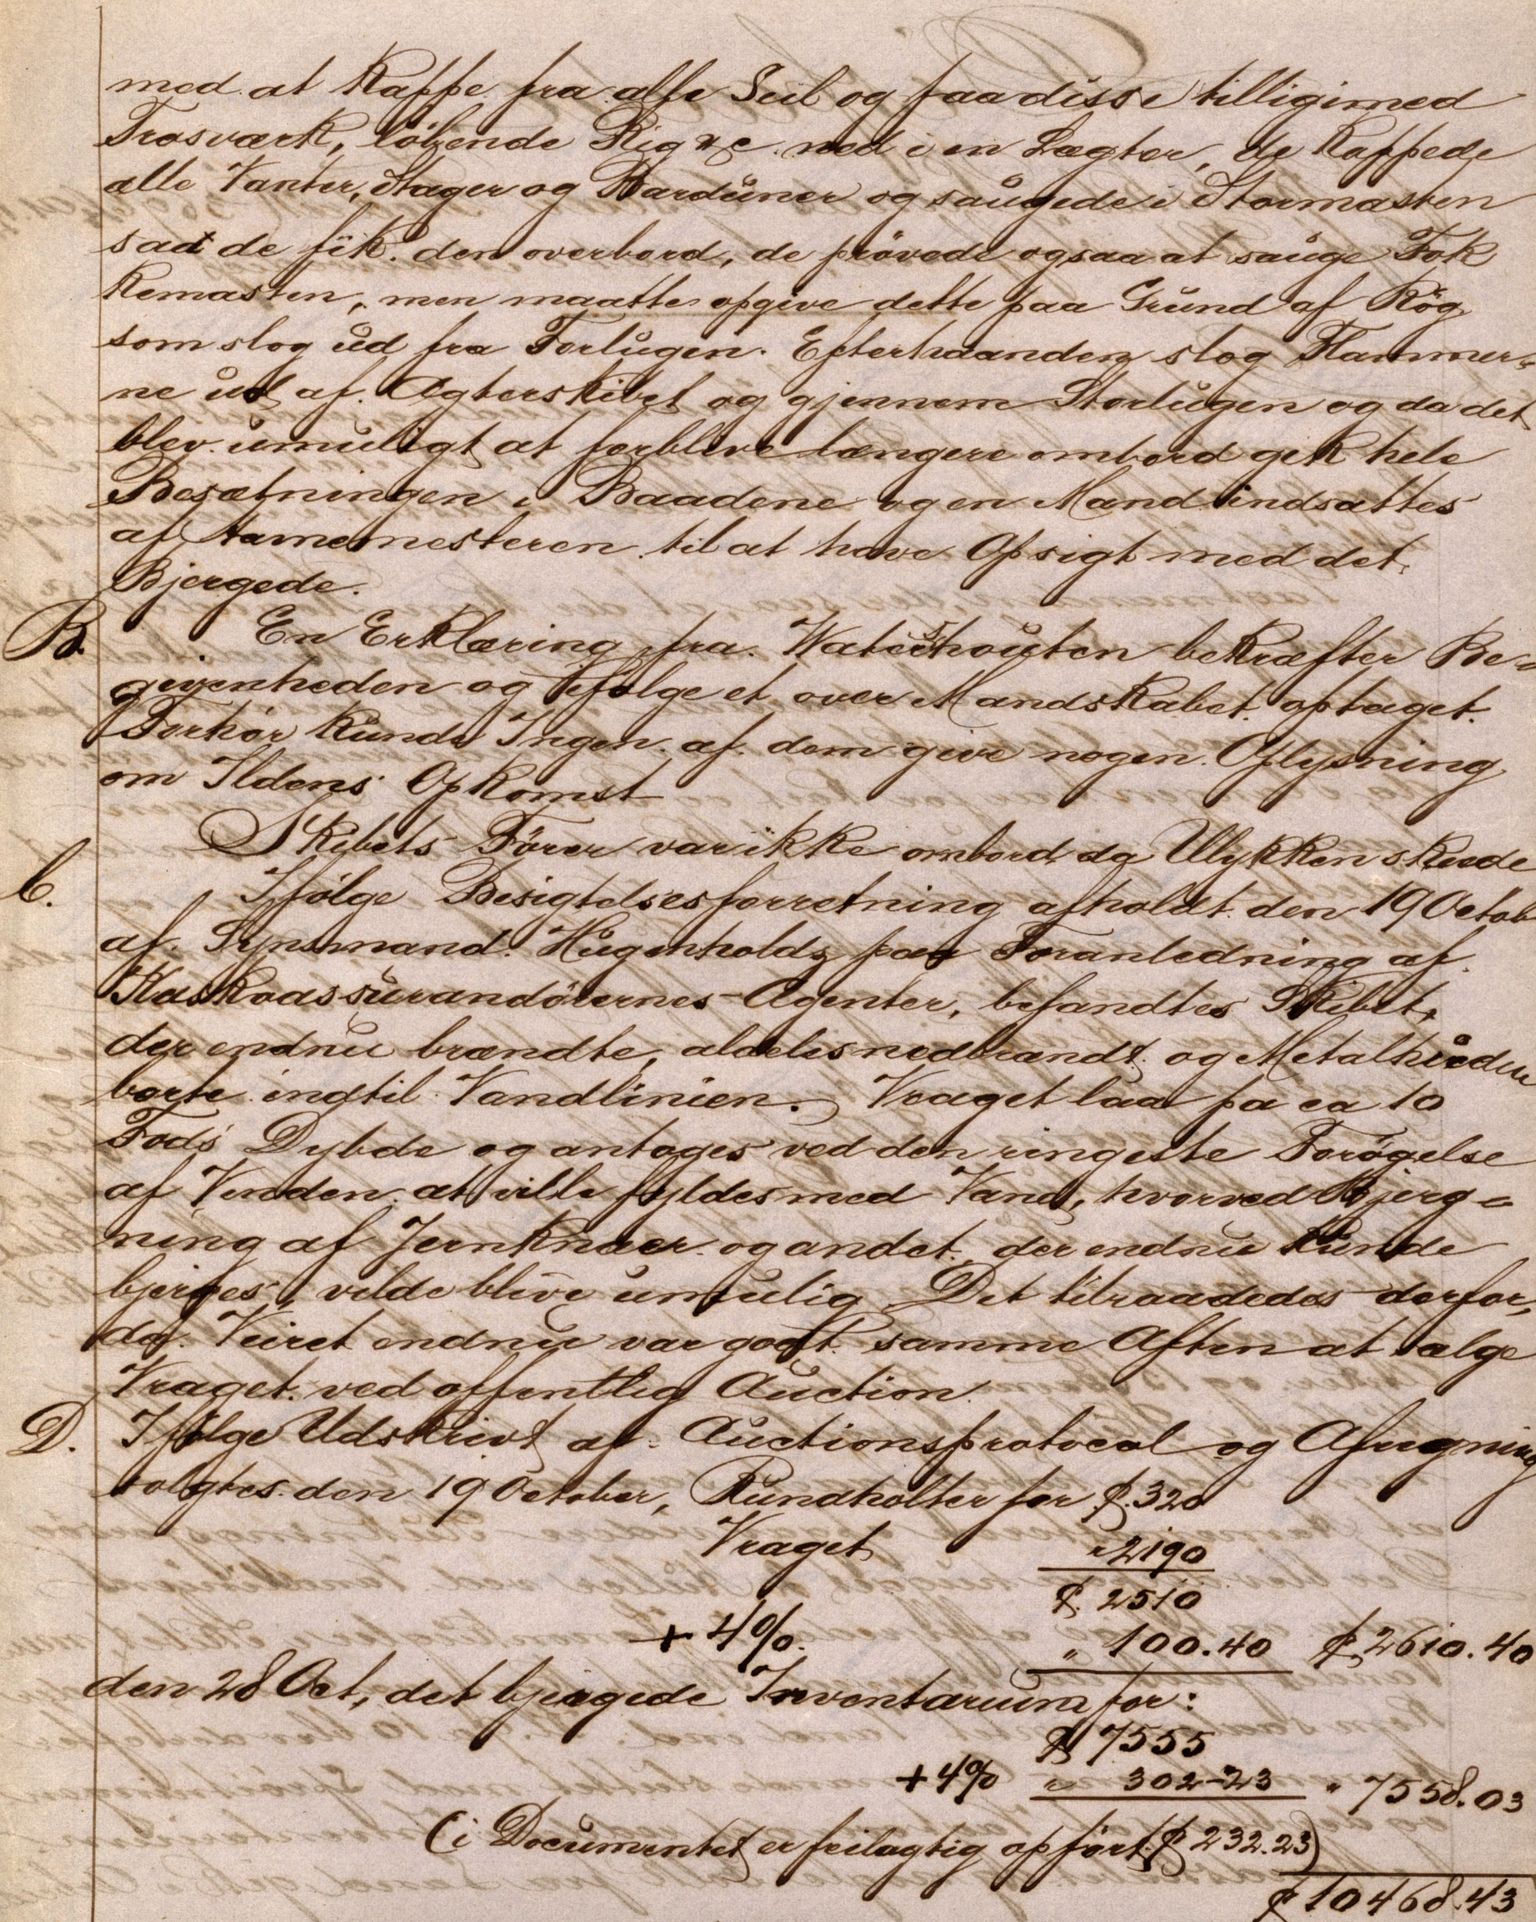 med at Kappe fra alle Seil og faa disse tilligemed
Trosværk, löbende Rig &c ned i en Lægter, de Kappede
alle Vanter, Stager og Bardüner og saügede i Stormasten
saa de fik den overbord, de prövede ogsaa at saüge Fok
Kemasten, men maatte opgive dette paa Gründ af Rög
som slog üd fra Forlügen. Efterhaanden slog Flammer-
ne üd af Agterskibet og gjennem Storlügen og da det
blev umuligt at forblive længere ombord gik hele
Besætningen i Baadene og en Mand indsattes
af Havnemesteren til at have Opsigt med det
Bjergede.
B. En Erklæring fra Waterschouten bekræfter Be-
givenheden og ifølge et over Mandskabet optaget
Forhör Künde Ingen af dem give nogen Oplysning
om Ildens Opkomst
Skibets Förer var ikke ombord da Ulykken skede
C. Ifölge Besigtelsesforretning afholdt den 19 Octob
af Synsmand Hügenholdz paa Foranledning af
Kaskoassürandörernes Agenter, befandtes Skibet,
der endnu brændte, aldeles nedbrændt og Metalhüden
borte indtil Vandlinien. Vraget laa pa ca 10
Fods Dybde og antoges ved den ringeste Forögelse
af Vinden at ville fyldes med Vand, hvorved Bjerg-
ning af Jernknær og andet, der endnu Künde
bjerges, vilde blive umulig. Det tilraadedes derfor,
da Veiret endnu var godt samme Aften at sælge
Vraget ved offentlig Auction
D. Ifölge Udskrivt af Auctionsprotocol og Afregning
solgtes den 19 October, Rundholter for $ 320
Vraget " 2190
$ 2510
+ 4% " 100.40 $ 2610.40
den 28 Oct, det bjergede Inventarium for:
$ 7555
+ 4% " 302-23 " 7558.03
(i Documentet er feilagtig opfört $ 232.23)
$ 10468.43